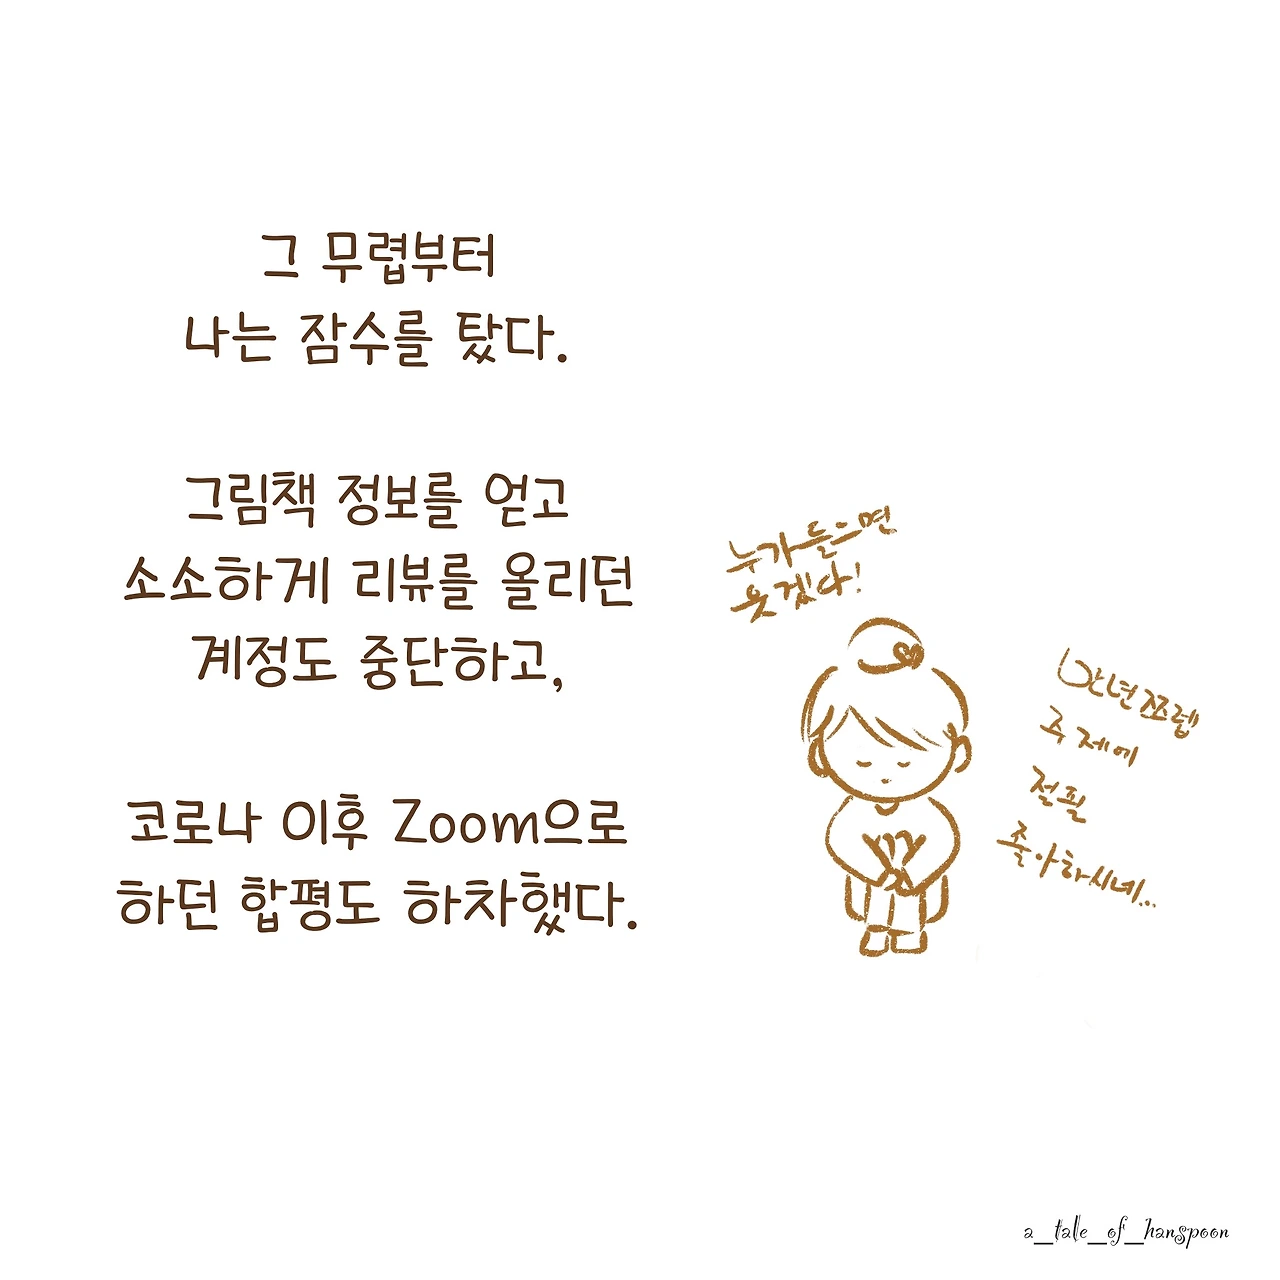 그 무렵부터
나는 잠수를 탔다.
그림책 정보를 얻고
소소하게 리뷰를 올리던
계정도 중단하고,
코로나 이후 Zoom으로
하던 합평도 하차했다.
누가들으면
웃겠다!
만년쪼렙
주제에
절필
좋아하시네...
a_tale_of_hanspoon